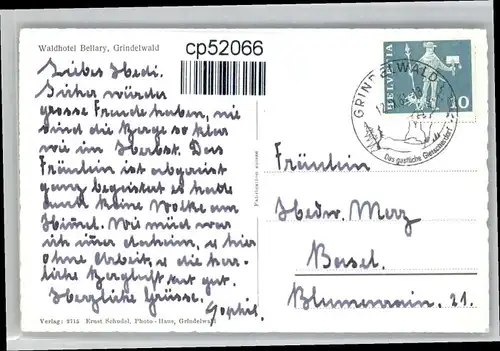 Waldhotel Bellary, Grindelwald
cp52066
Liebes Hedi.
Sicher würdes
grosse Freude haben, nie
sind die Berge so klar
wie im Herbst. Das
Fräulein ist
ganz begeistert es hatte
auch keine Wolke am
Himmel. Wie müd war
ich immer daheim, u hier
ohne Arbeit, u die herr-
liche Bergluft tut gut.
Herzliche Grüsse.
Sophie.
Verlag: 2715 Ernst Schudel, Photo-Haus, Grindelwald
HELVETIA
GRINDELWALD
Das gastliche Gletscherdorf
Fräulein
Hedw. Merz
Basel.
Blumenrain. 21.